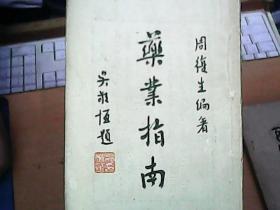 周復生編著
藥業指南
吳敬恆題